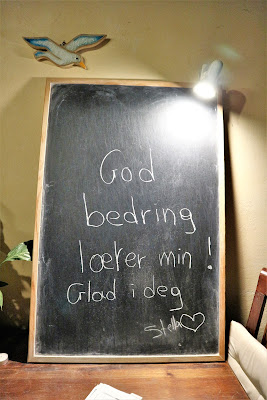 God
bedring
lærer min !
Glad i deg
Stella♡